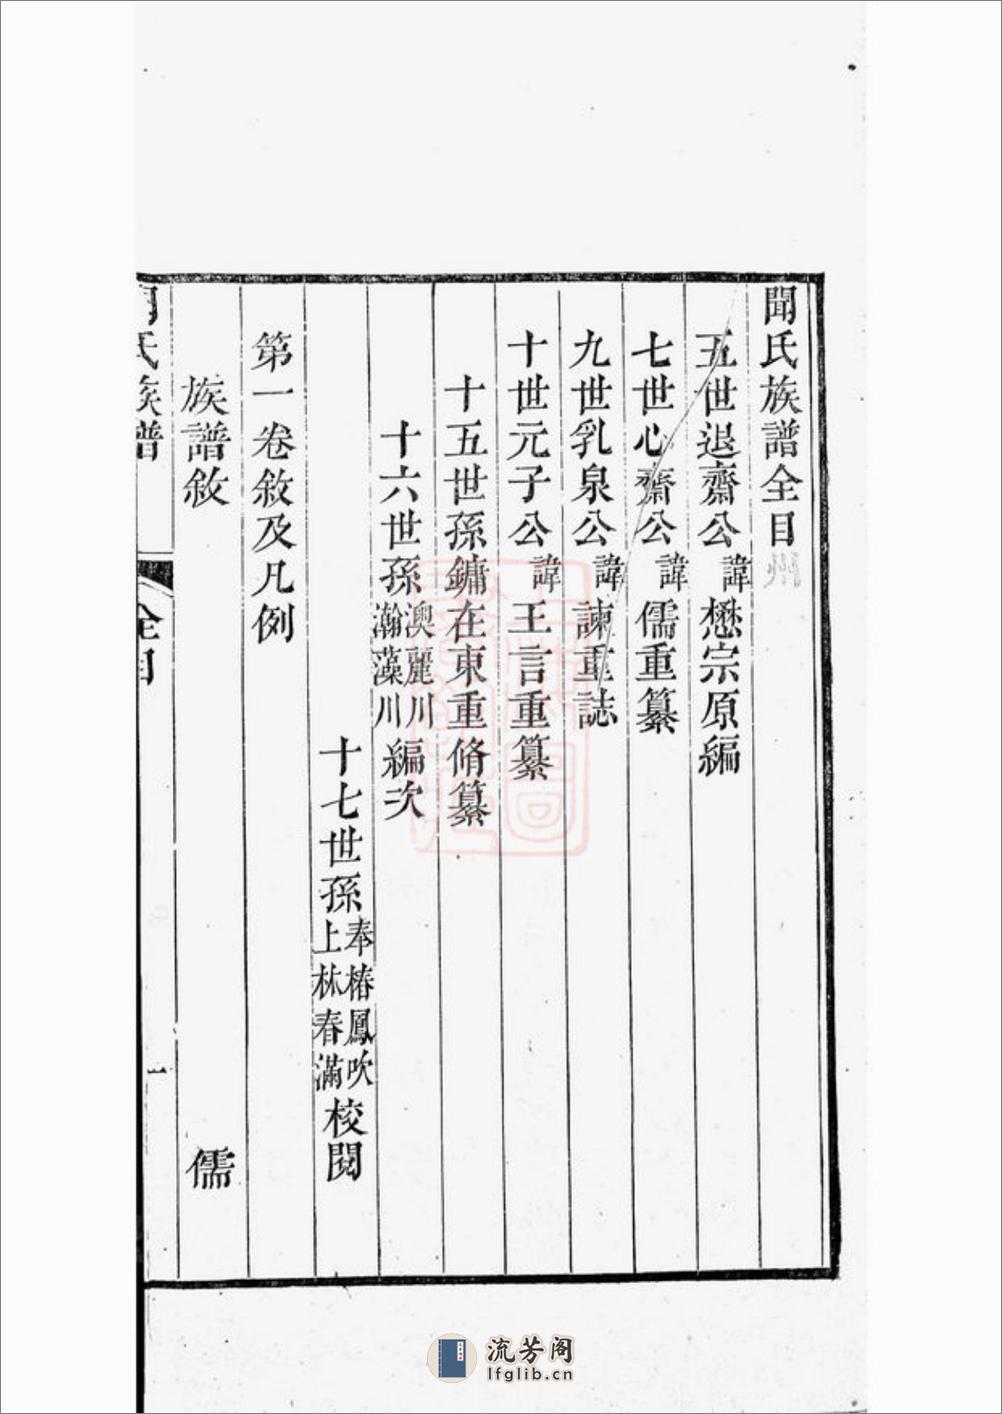 聞氏族譜全目
五世退齋公諱懋宗原編
七世心齋公諱儒重纂
九世乳泉公諱諫重誌
十世元子公諱王言重纂
十五世孫鏞在東重脩纂
十六世孫澳麗川瀚藻川編次
十七世孫奉椿鳳吹上林春滿校閱
第一卷敘及凡例
族譜敘 儒
聞氏族譜 全目 一
流芳阁
lfglib.cn